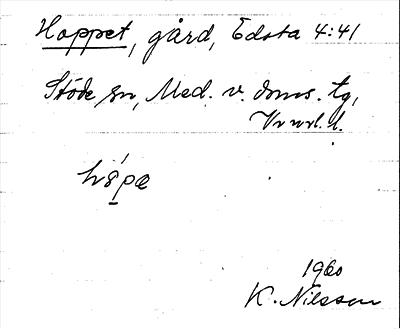 Hoppet, gård, Edsta 4:41
Stöde sn, Med. v. doms. tg,
1960
K. Nilsson